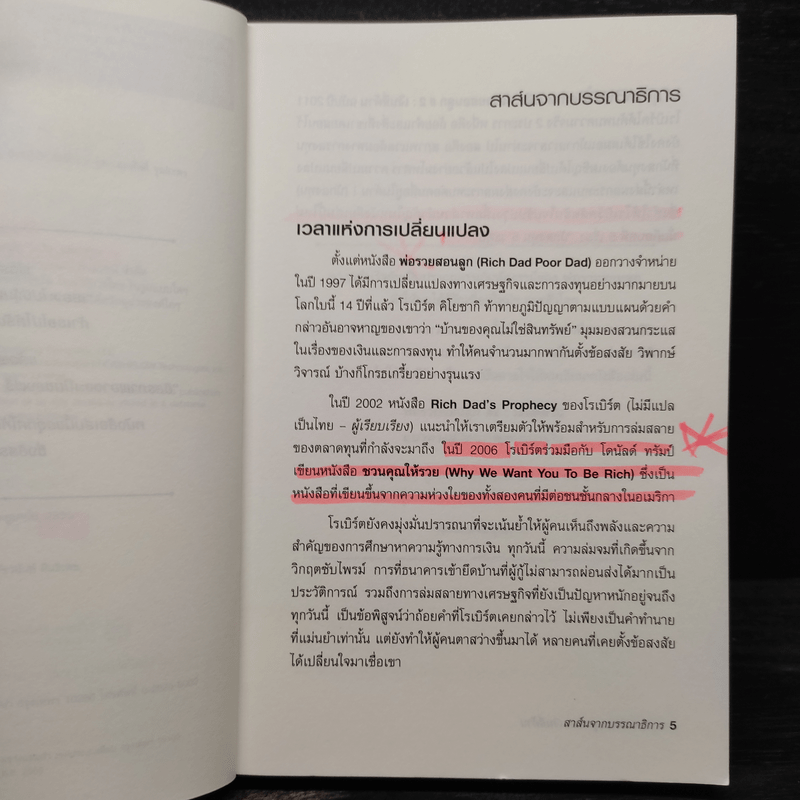 สาส์นจากบรรณาธิการ
เวลาแห่งการเปลี่ยนแปลง
ตั้งแต่หนังสือ พ่อรวยสอนลูก (Rich Dad Poor Dad) ออกวางจำหน่าย
ในปี 1997 ได้มีการเปลี่ยนแปลงทางเศรษฐกิจและการลงทุนอย่างมากมายบน
โลกใบนี้ 14 ปีที่แล้ว โรเบิร์ต คิโยซากิ ท้าทายภูมิปัญญาตามแบบแผนด้วยคำ
กล่าวอันอาจหาญของเขาว่า “บ้านของคุณไม่ใช่สินทรัพย์” มุมมองสวนกระแส
ในเรื่องของเงินและการลงทุน ทำให้คนจำนวนมากพากันตั้งข้อสงสัย วิพากษ์
วิจารณ์ บ้างก็โกรธเกรี้ยวอย่างรุนแรง
ในปี 2002 หนังสือ Rich Dad's Prophecy ของโรเบิร์ต (ไม่มีแปล
เป็นไทย – ผู้เรียบเรียง) แนะนำให้เราเตรียมตัวให้พร้อมสำหรับการล่มสลาย
ของตลาดทุนที่กำลังจะมาถึง ในปี 2006 โรเบิร์ตร่วมมือกับ โดนัลด์ ทรัมป์
เขียนหนังสือ ชวนคุณให้รวย (Why We Want You To Be Rich) ซึ่งเป็น
หนังสือที่เขียนขึ้นจากความห่วงใยของทั้งสองคนที่มีต่อชนชั้นกลางในอเมริกา
โรเบิร์ตยังคงมุ่งมั่นปรารถนาที่จะเน้นย้ำให้ผู้คนเห็นถึงพลังและความ
สำคัญของการศึกษาหาความรู้ทางการเงิน ทุกวันนี้ ความล่มจมที่เกิดขึ้นจาก
วิกฤตซับไพรม์ การที่ธนาคารเข้ายึดบ้านที่ผู้กู้ไม่สามารถผ่อนส่งได้มากเป็น
ประวัติการณ์ รวมถึงการล่มสลายทางเศรษฐกิจที่ยังเป็นปัญหาหนักอยู่จนถึง
ทุกวันนี้ เป็นข้อพิสูจน์ว่าถ้อยคำที่โรเบิร์ตเคยกล่าวไว้ ไม่เพียงเป็นคำทำนาย
ที่แม่นยำเท่านั้น แต่ยังทำให้ผู้คนตาสว่างขึ้นมาได้ หลายคนที่เคยตั้งข้อสงสัย
ได้เปลี่ยนใจมาเชื่อเขา
สาส์นจากบรรณาธิการ 5